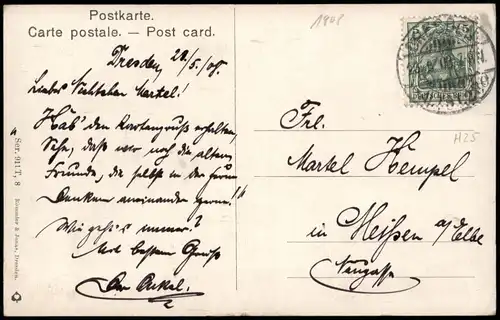 Postkarte.
Carte postale. — Post card.
1908
Dresden 28/5. 08.
Liebes Nichtchen Martel!
Hab' den Kartengruß erhalten,
Sehe, daß wir noch die alten
Freunde, die selbst in der Ferne
Denken aneinander gern!
Wie geht's immer?
Mit bestem Gruß
Dein Onkel.
Frl.
Martel Hempel
H25
in Meißen a/Elbe
Neugasse
Ser. 911 T, 8
Römmler & Jonas, Dresden.